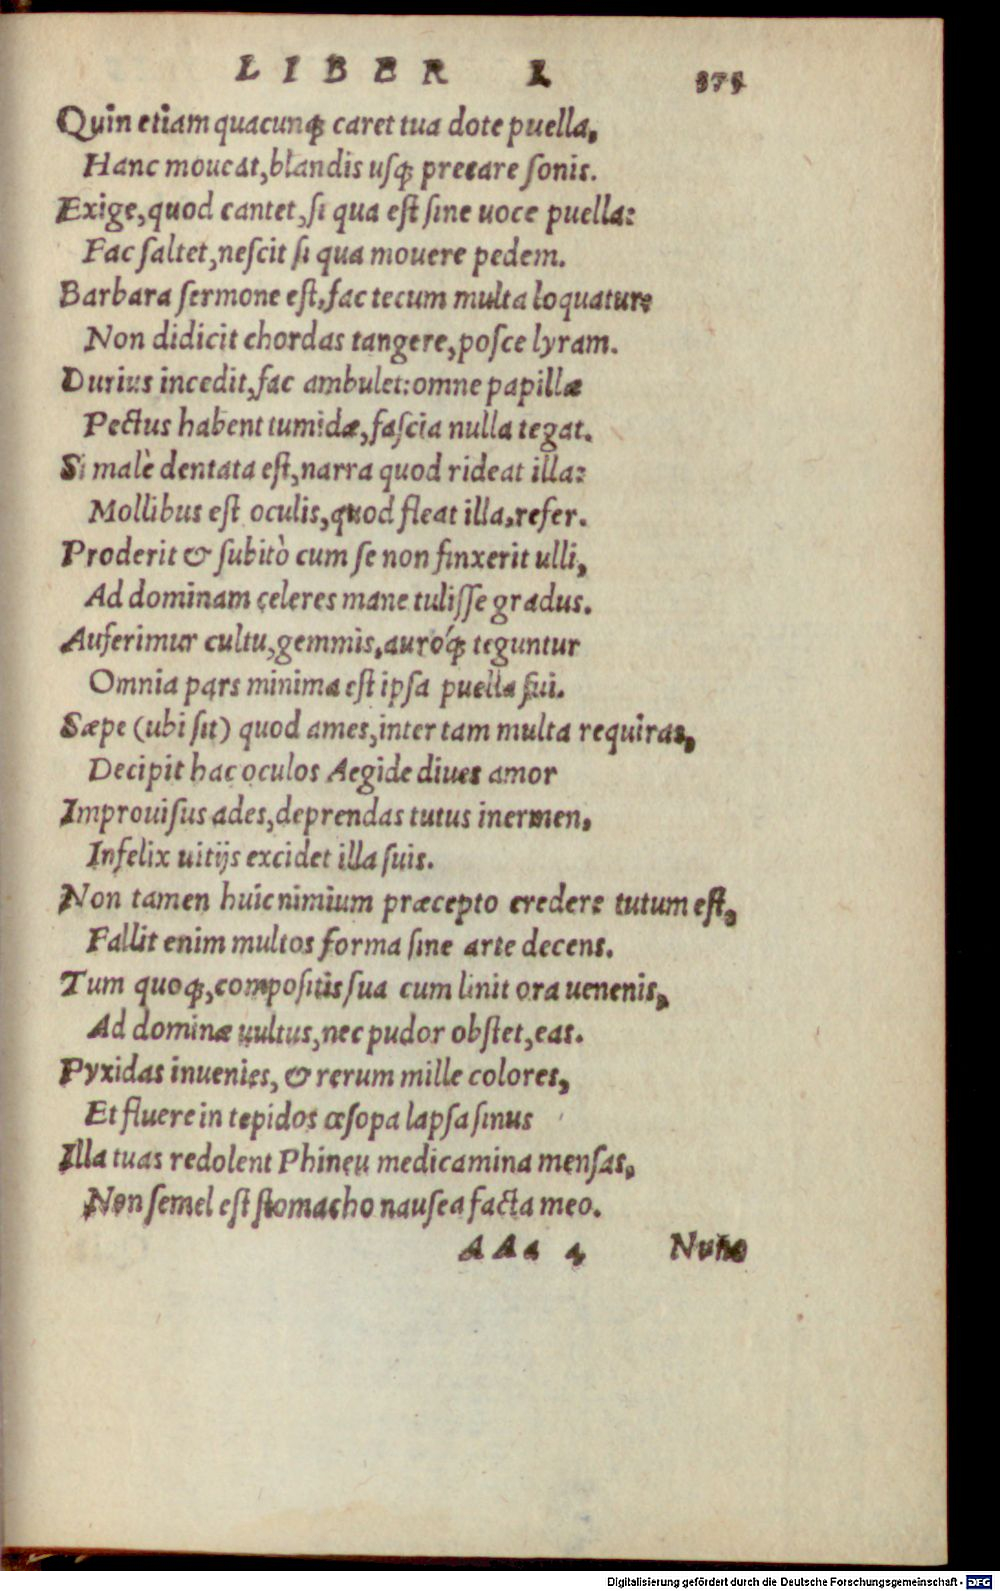 LIBER I. 375
Quin etiam quacunq; caret tua dote puella,
Hanc moueat, blandis usq; precare sonis.
Exige, quod cantet, si qua est sine uoce puella:
Fac saltet, nescit si qua mouere pedem.
Barbara sermone est, fac tecum multa loquatur:
Non didicit chordas tangere, posce lyram.
Durius incedit, fac ambulet: omne papillæ
Pectus habent tumidæ, fascia nulla tegat.
Si malè dentata est, narra quod rideat illa:
Mollibus est oculis, quod fleat illa, refer.
Proderit & subitò cum se non finxerit ulli,
Ad dominam celeres mane tulisse gradus.
Auferimur cultu, gemmis, auróq; teguntur
Omnia pars minima est ipsa puella sui.
Sæpe (ubi sit) quod ames, inter tam multa requiras,
Decipit hac oculos Aegide diues amor
Improuisus ades, deprendas tutus inermen,
Infelix uitijs excidet illa suis.
Non tamen huic nimium præcepto credere tutum est,
Fallit enim multos forma sine arte decens.
Tum quoq;, compositis sua cum linit ora uenenis,
Ad dominæ uultus, nec pudor obstet, eas.
Pyxidas inuenies, & rerum mille colores,
Et fluere in tepidos œsopa lapsa sinus
Illa tuas redolent Phineu medicamina mensas,
Non semel est stomacho nausea facta meo.
AAa 4 Nunc
Digitalisierung gefördert durch die Deutsche Forschungsgemeinschaft - DFG